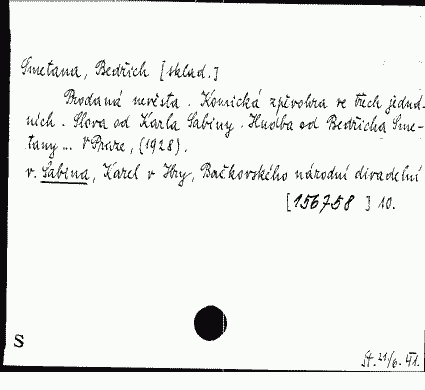 Smetana, Bedřich [sklad.]
Prodaná nevěsta. Komická zpěvohra ve třech jednd-
ních. Slova od Karla Sabiny. Hudba od Bedřicha Sme-
tany... V Praze, (1928).
v. Sabina, Karel v Hry, Bačkovského národní divadelní
[156758] 10.
S
St. 21/6. VI.